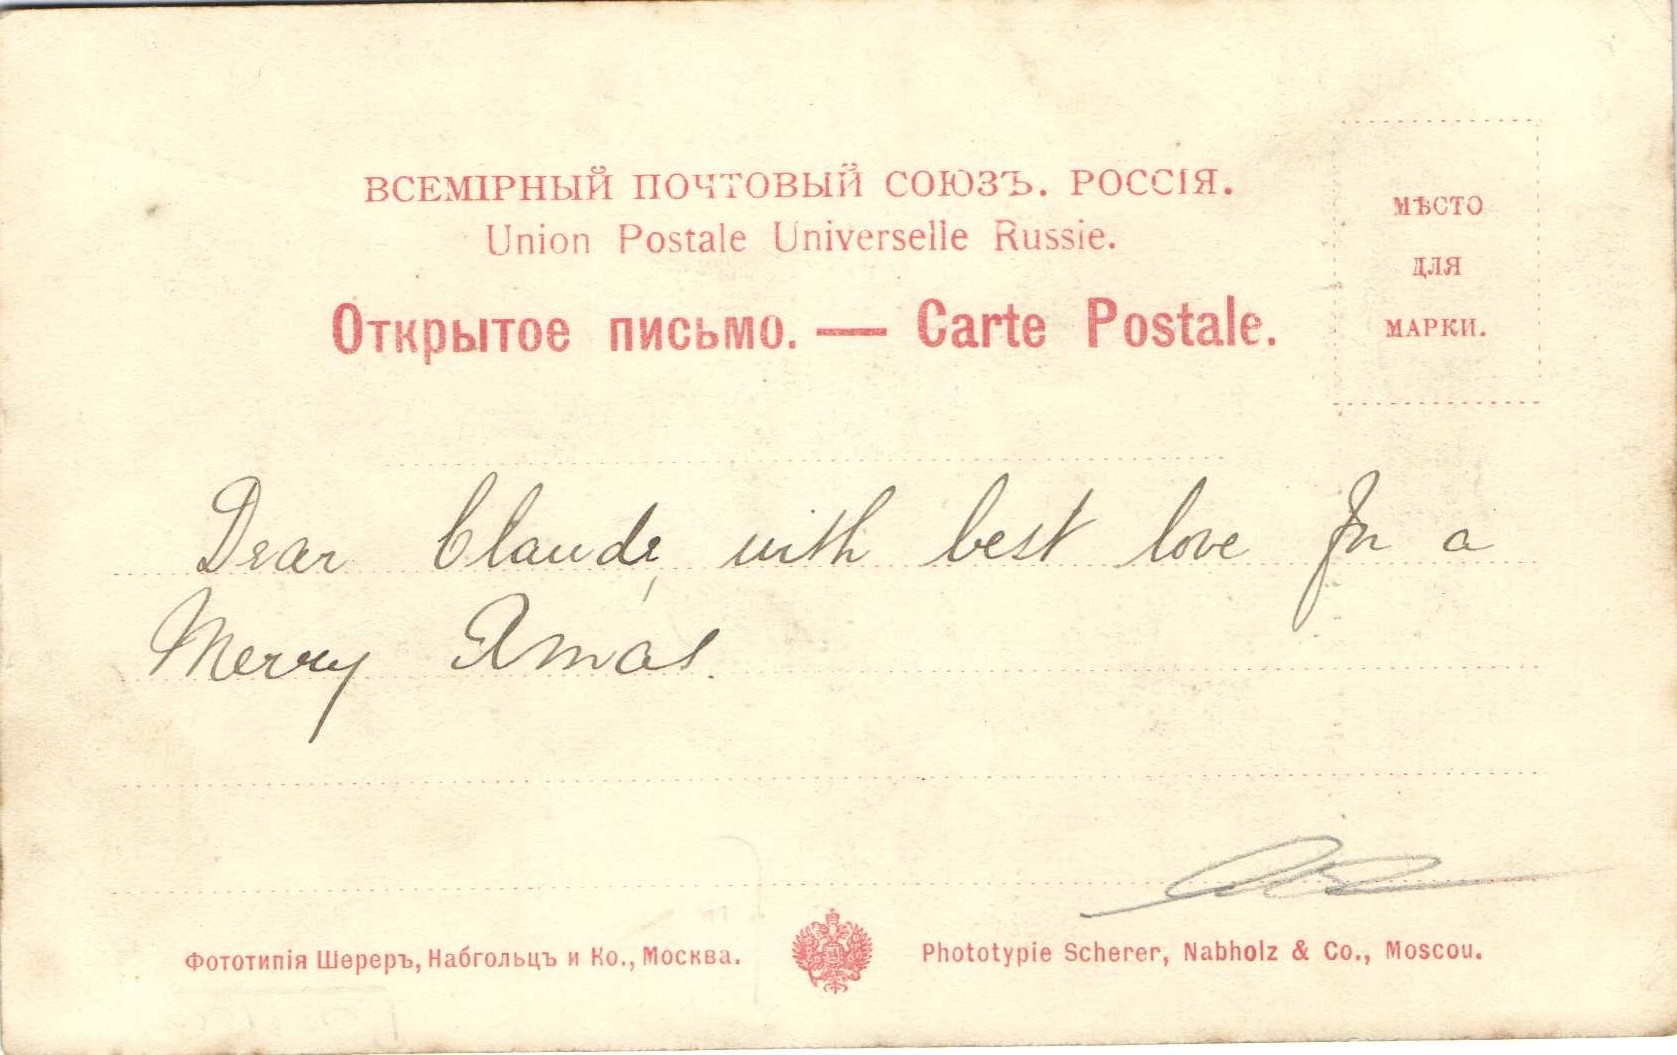 ВСЕМІРНЫЙ ПОЧТОВЫЙ СОЮЗЪ. РОССІЯ.
Union Postale Universelle Russie.
Открытое письмо. — Carte Postale.
МѢСТО
ДЛЯ
МАРКИ.
Dear Claude, with best love for a
Merry Xmas.
Фототипія Шереръ, Набгольцъ и Ко., Москва.
Phototypie Scherer, Nabholz & Co., Moscou.